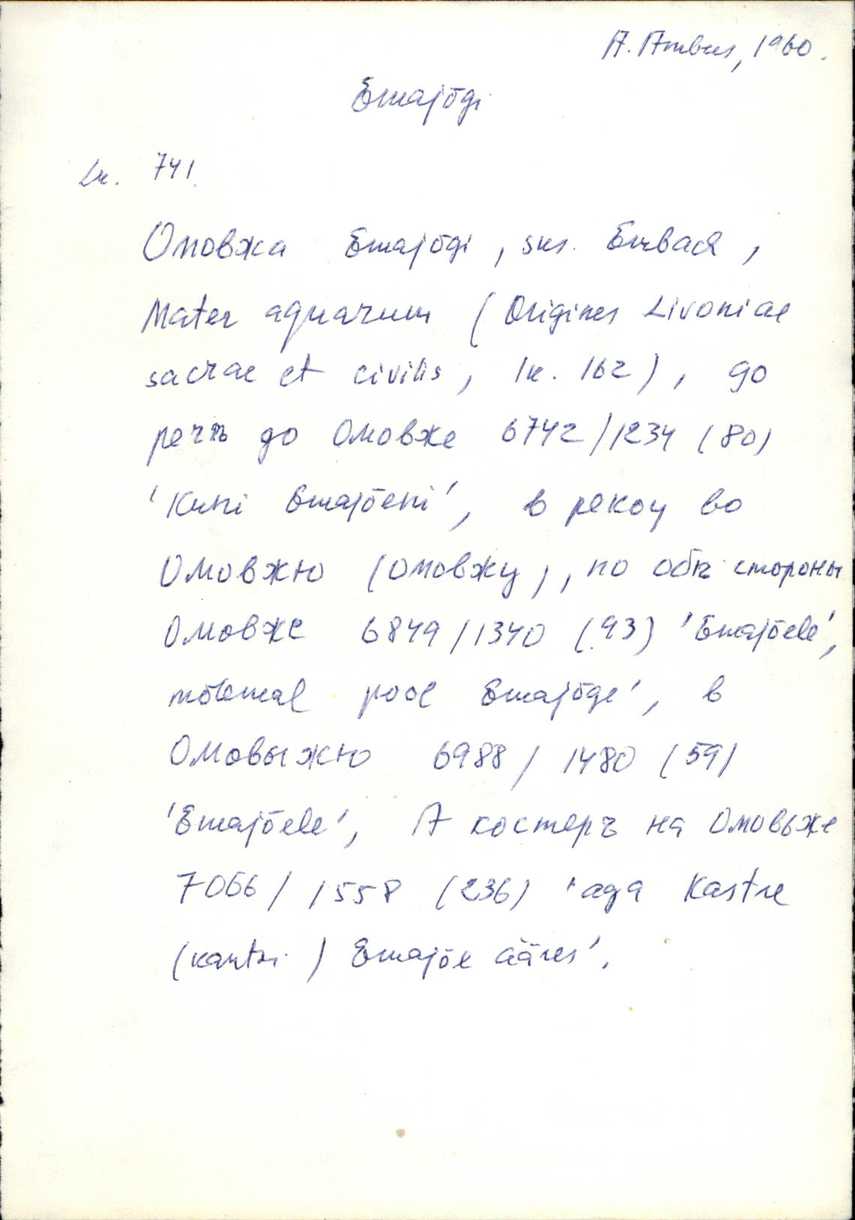 A. Ambus, 1960.
Emajõgi
Lk. 741.
Омовжа Emajõgi, sks. Embach,
Mater aquarum (Origines Livoniae
sacrae et civilis, lk. 162), до
речкъ до Омовже 6742/1234 (80)
'Kuni Emajõeni', в рекоу во
Омовжю (Омовжу), по обѣ стороны
Омовже 6849/1340 (93) 'Emajõele',
mõlemal pool Emajõge', в
Омовыжю 6988/1480 (59)
'Emajõele', А костеръ на Омовьже
7066/1558 (236) 'aga Kastre
(kantsi) Emajõe ääres'.